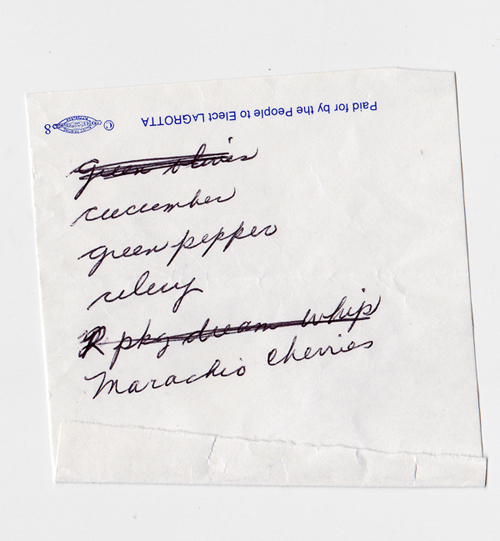 Paid for by the People to Elect LAGROTTA
© 8
green olives
cucumber
green pepper
celery
pkg dream whip
Marachio Cherries